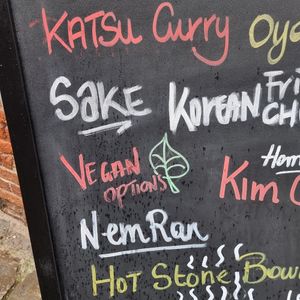 KATSU Curry Oyo
SAKE KOREAN Fri
CH
VEGAN
OPTIONS
Hom
Kim C
Nem Ran
HOT Stone Bow